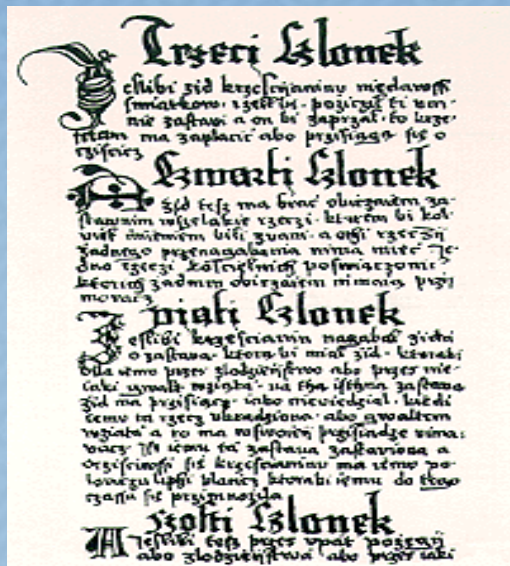 Trzeci Czlonek
Jeslibi zid krzescijaninu niedawssi
rzekl bi · poziczil ti
nie zastawi a on bi zaprzal · to krze
ma zaplacic abo przisięgą się o
cziscicz
Czwarti Czlonek
A zid tesz ma brac obiczaiem za-
stawnim wszelakie rzeczi · kt bi kol
wiek imieniem bili zwani · a othi rzeczij
zadnego przenagabania nima miec Je-
dno rzeczi koscielnich poswiączonic
ktorich zadnim obiczaiem nimaią przij
mowacz
piąti Czlonek
Jeslibi krzescianin nagabal zida
o zastawą · ktorą bi mial zid · ktorabi
bila iemu przes zlodzieistwo abo przes nie-
iaki gwalt wziąta · na thą isthną zastawą
zid ma przisiącz iako niewiedzial · kiedi
iemu tą rzecz ukradzioną · abo gwaltem
wziątą a to ma przisiądze nima-
iemu tą zastawą zastawioną a
się krzescianin ma iemu
lupki ktorabi iemu do tego
czassu się przimnozila
szosti Czlonek
A Jeslibi tesz przes upat pozogij
abo zlodzieistwa abo przes iaki